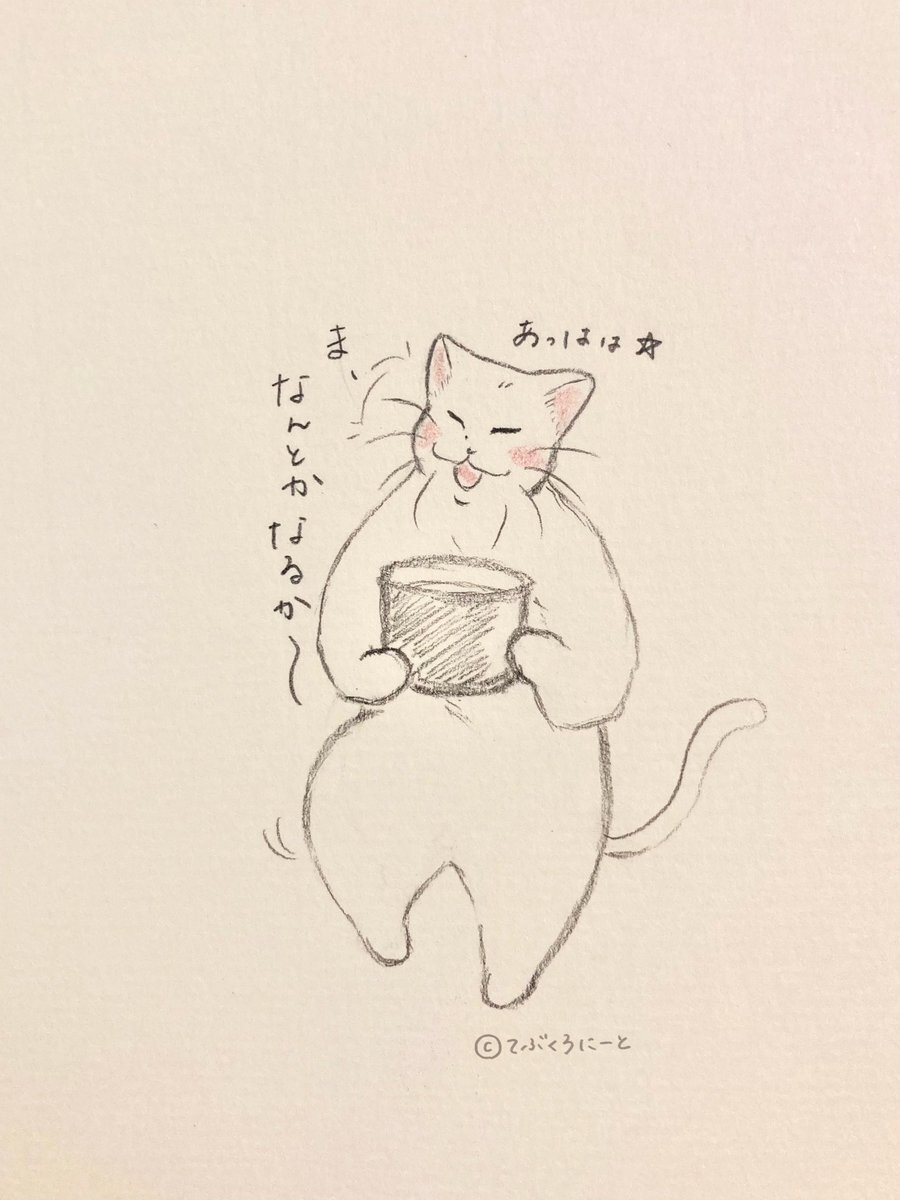 あっはは☆
ま、
なんとかなるか〜
©てぶくろにーと